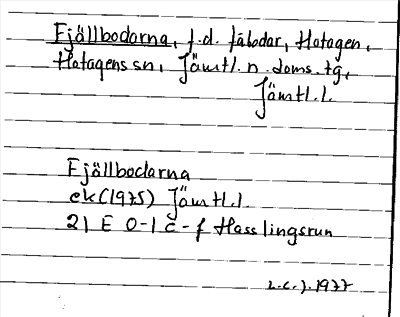 Fjällbodarna, f.d. fäbodar, Hotagen,
Hotagens sn, Jämtl. n. doms. tg,
Jämtl. l.
Fjällbodarna
ek (1975) Jämtl. l.
21 E 0-1 c-f Hasslingsrun
L.C.J. 1977